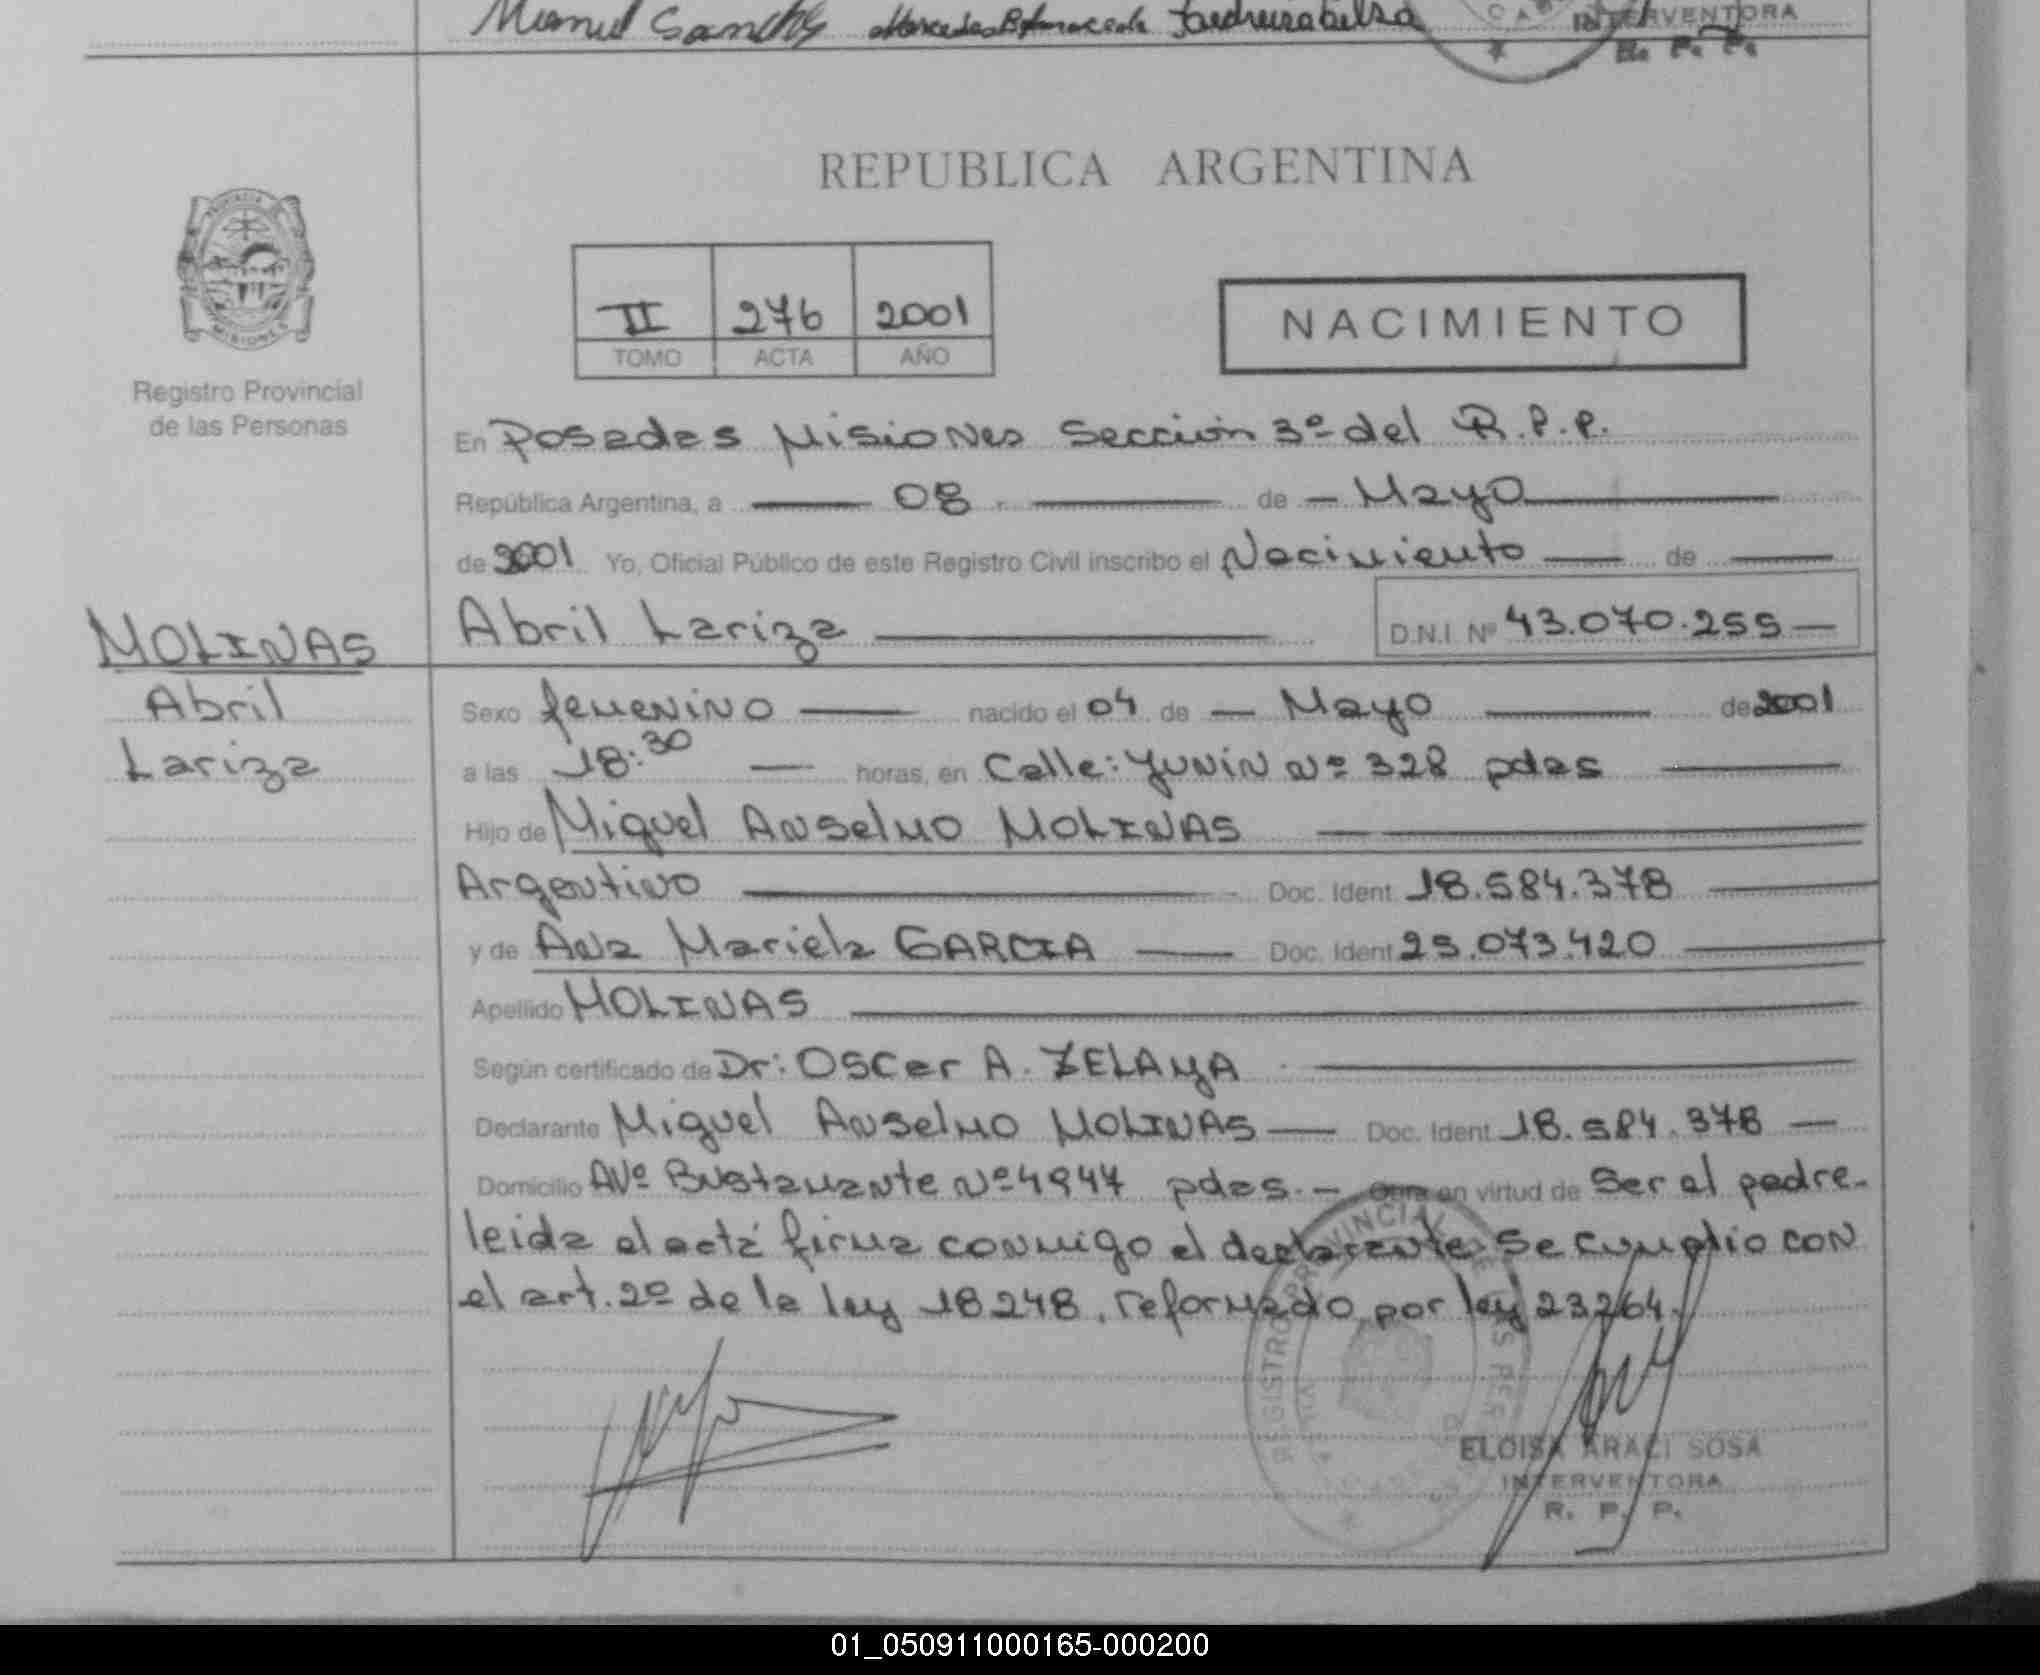 Manuel Sanchez
INTERVENTORA
R. P. P.
REPUBLICA ARGENTINA
PROVINCIA
MISIONES
Registro Provincial
de las Personas
II 276 2001
TOMO ACTA AÑO
NACIMIENTO
En Posadas Misiones Sección 3º del R.P.P.
República Argentina, a 08 de Mayo
de 2001 Yo, Oficial Público de este Registro Civil inscribo el Nacimiento de
MOLINAS
Abril
Lariza
Abril Lariza D.N.I. Nº 43.070.255
Sexo femenino nacido el 04 de Mayo de 2001
a las 18:30 horas, en Calle: Junin Nº 328 pdas
Hijo de Miguel Anselmo MOLINAS
Argentino Doc. Ident. 18.584.378
y de Ana Mariela GARCIA Doc. Ident. 25.073.420
Apellido MOLINAS
Según certificado de Dr: Oscar A. ZELAYA
Declarante Miguel Anselmo MOLINAS Doc. Ident. 18.584.378
Domicilio AVº Bustamante Nº 4947 pdas. en virtud de Ser el padre.
leida el acta firma conmigo el declarante Se cumplio con
el art. 2º de la ley 18248, reformado por ley 23264.
REGISTRO PROVINCIAL DE LAS PERSONAS
ELOISA ARACI SOSA
INTERVENTORA
R. P. P.
01_050911000165-000200